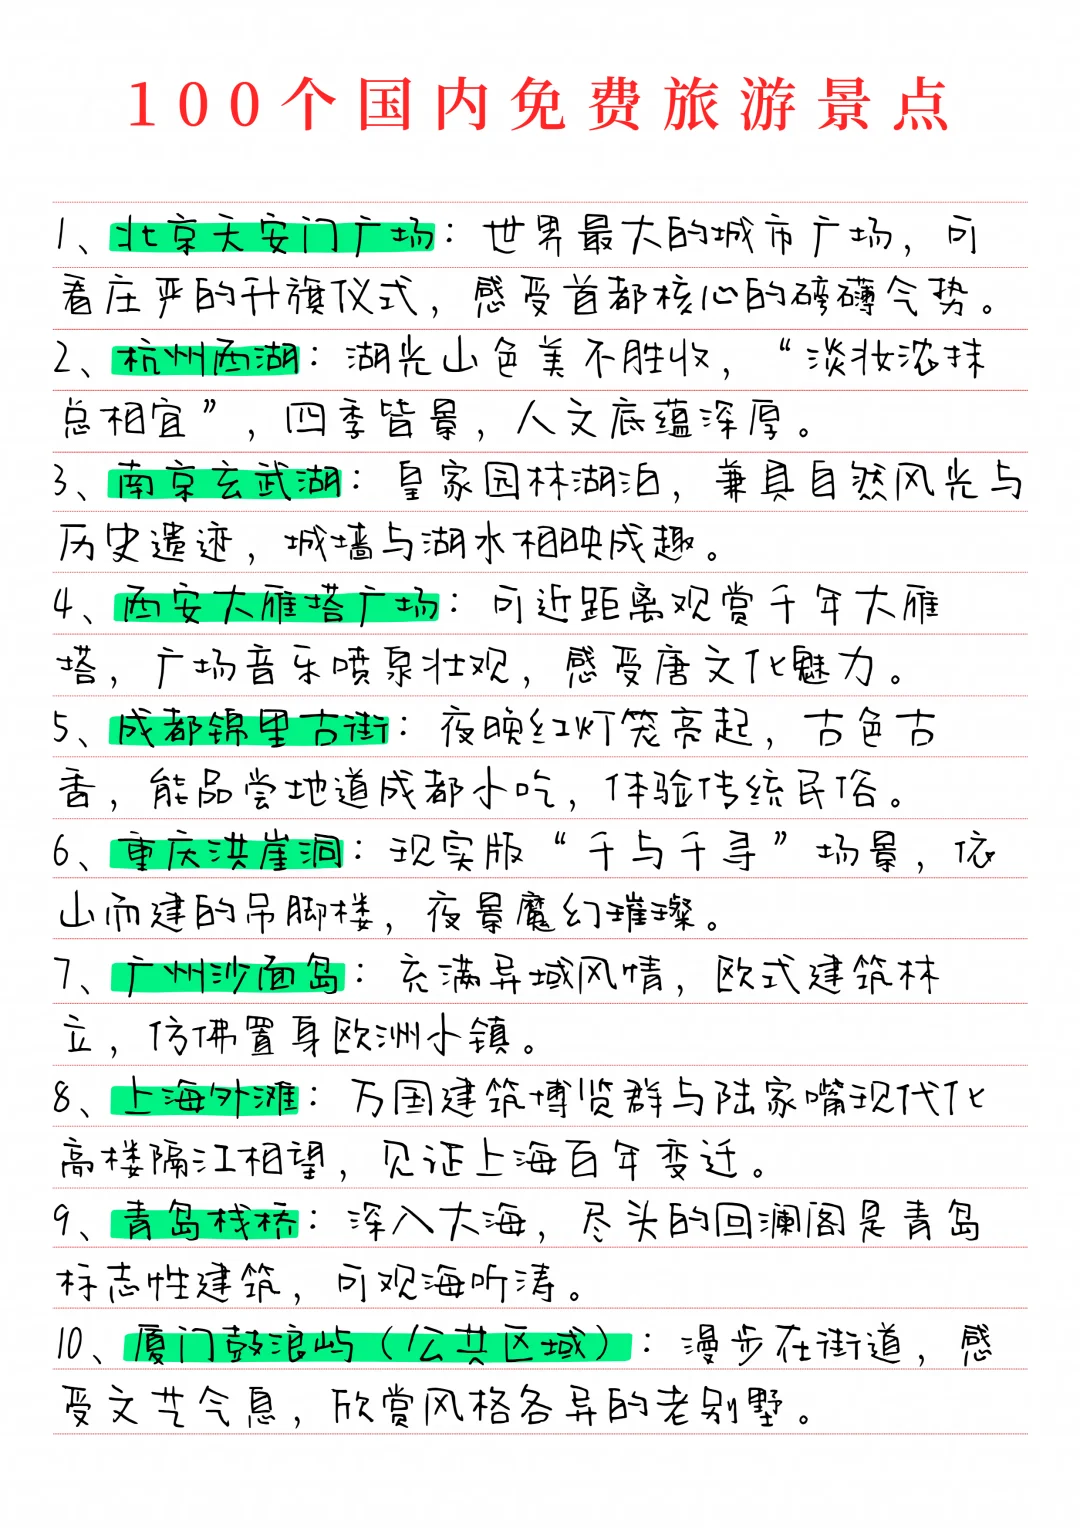 100个国内免费旅游景点
1、北京天安门广场：世界最大的城市广场，可
看庄严的升旗仪式，感受首都核心的磅礴气势。
2、杭州西湖：湖光山色美不胜收，“淡妆浓抹
总相宜”，四季皆景，人文底蕴深厚。
3、南京玄武湖：皇家园林湖泊，兼具自然风光与
历史遗迹，城墙与湖水相映成趣。
4、西安大雁塔广场：可近距离观赏千年大雁
塔，广场音乐喷泉壮观，感受唐文化魅力。
5、成都锦里古街：夜晚红灯笼亮起，古色古
香，能品尝地道成都小吃，体验传统民俗。
6、重庆洪崖洞：现实版“千与千寻”场景，依
山而建的吊脚楼，夜景魔幻璀璨。
7、广州沙面岛：充满异域风情，欧式建筑林
立，仿佛置身欧洲小镇。
8、上海外滩：万国建筑博览群与陆家嘴现代化
高楼隔江相望，见证上海百年变迁。
9、青岛栈桥：深入大海，尽头的回澜阁是青岛
标志性建筑，可观海听涛。
10、厦门鼓浪屿（公共区域）：漫步在街道，感
受文艺气息，欣赏风格各异的老别墅。